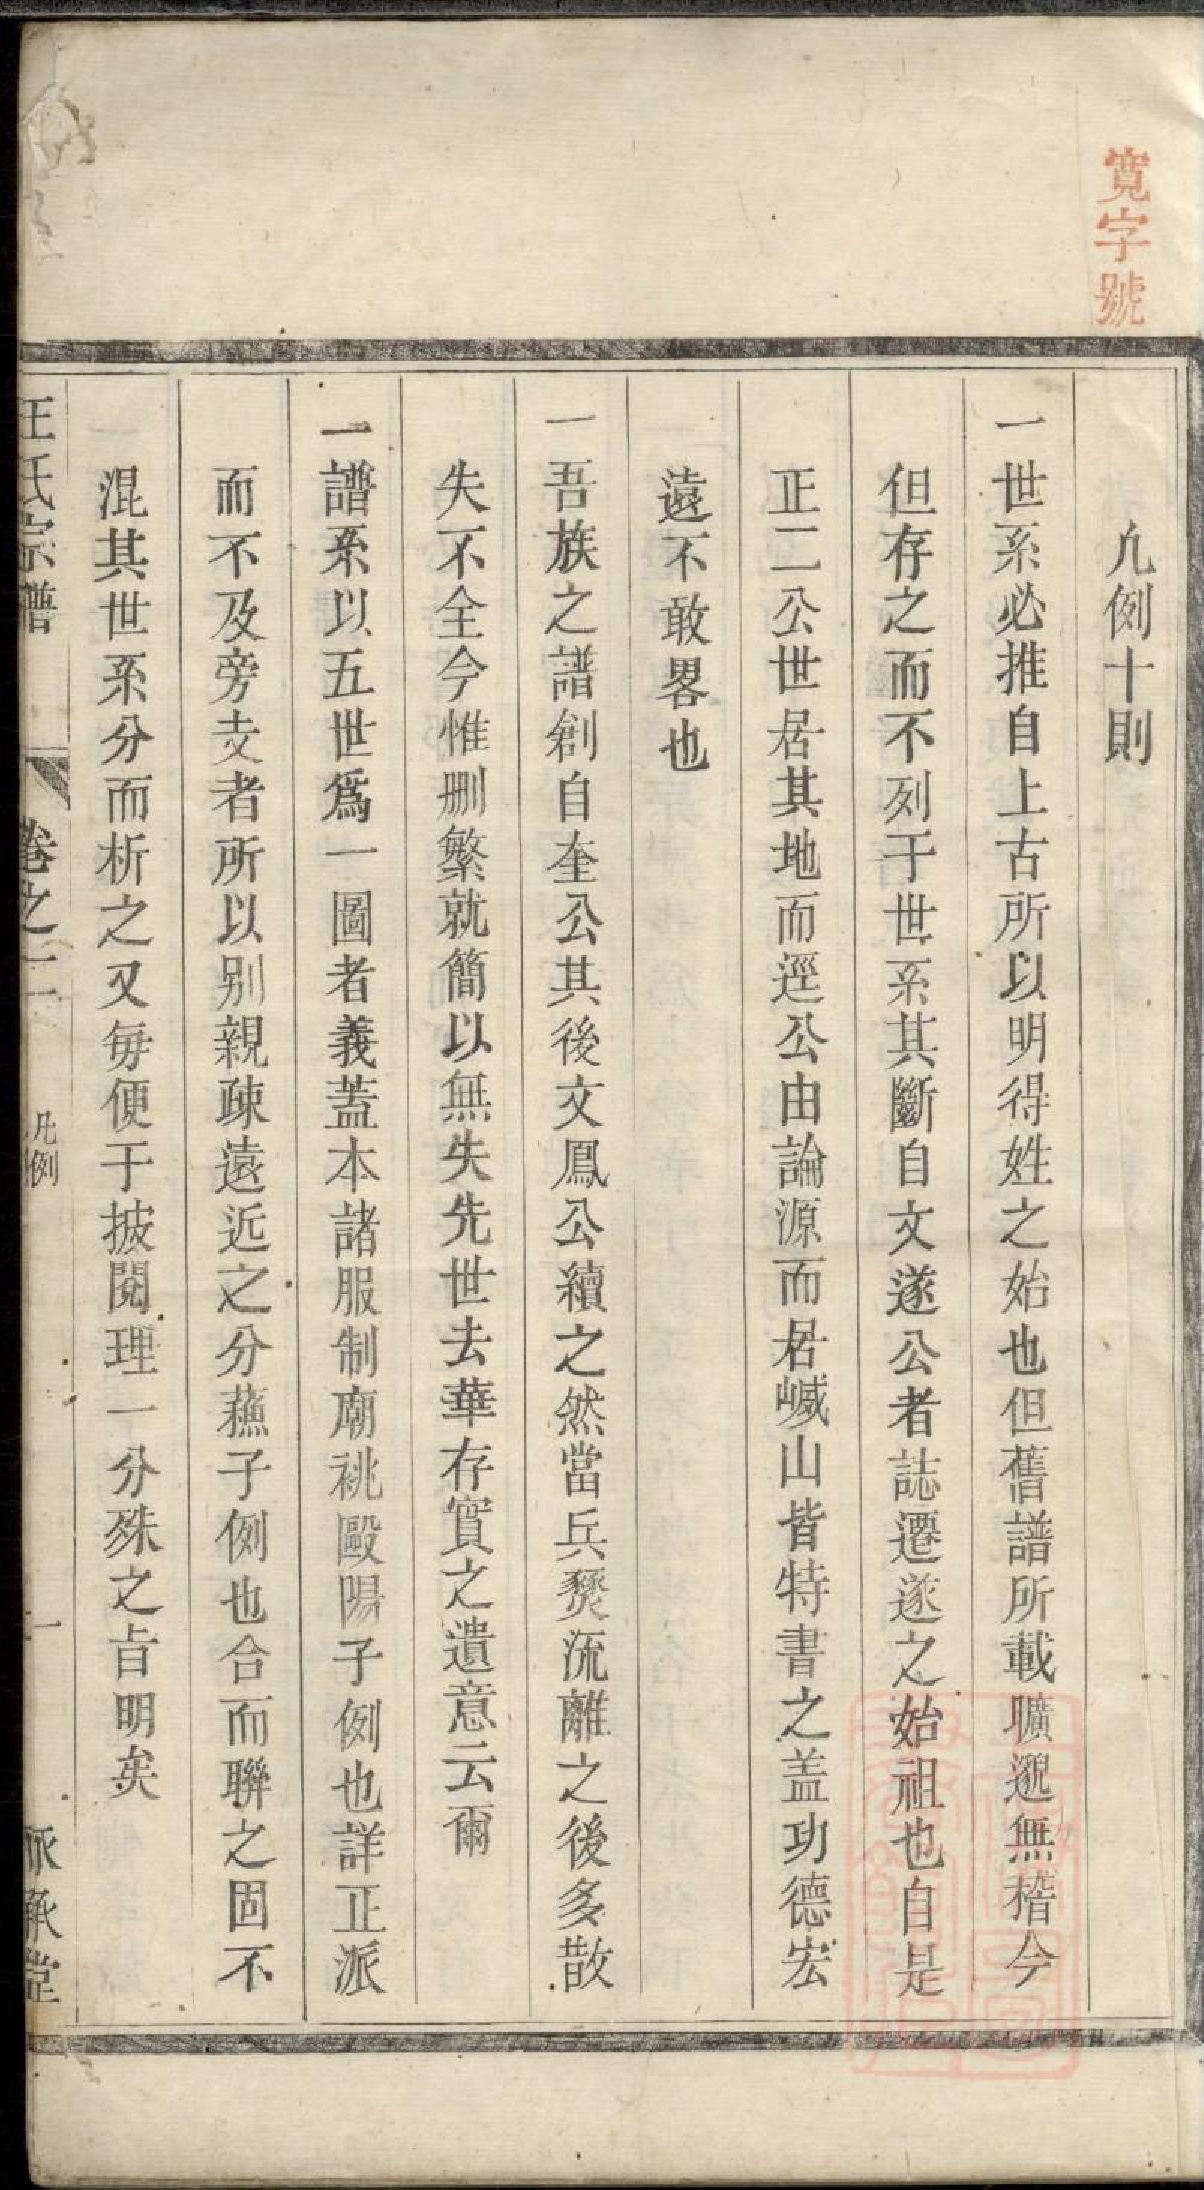 寛字號
凢例十則
一世系必推自上古所以明得姓之始也但舊譜所載曠邈無稽今
但存之而不列于世系其斷自文遂公者誌遷遂之始祖也自是
正二公世居其地而逕公由論源而居嵊山皆特書之盖功德宏
遠不敢畧也
一吾族之譜創自奎公其後文鳳公續之然當兵燹流離之後多散
失不全今惟刪繁就簡以無失先世去華存實之遺意云爾
一譜系以五世爲一圖者義蓋本諸服制廟祧歐陽子例也詳正派
而不及旁支者所以别親疎遠近之分蘓子例也合而聯之固不
混其世系分而析之又每便于披閱理一分殊之旨明矣
王氏宗譜
卷之二
凡例
一
承堂